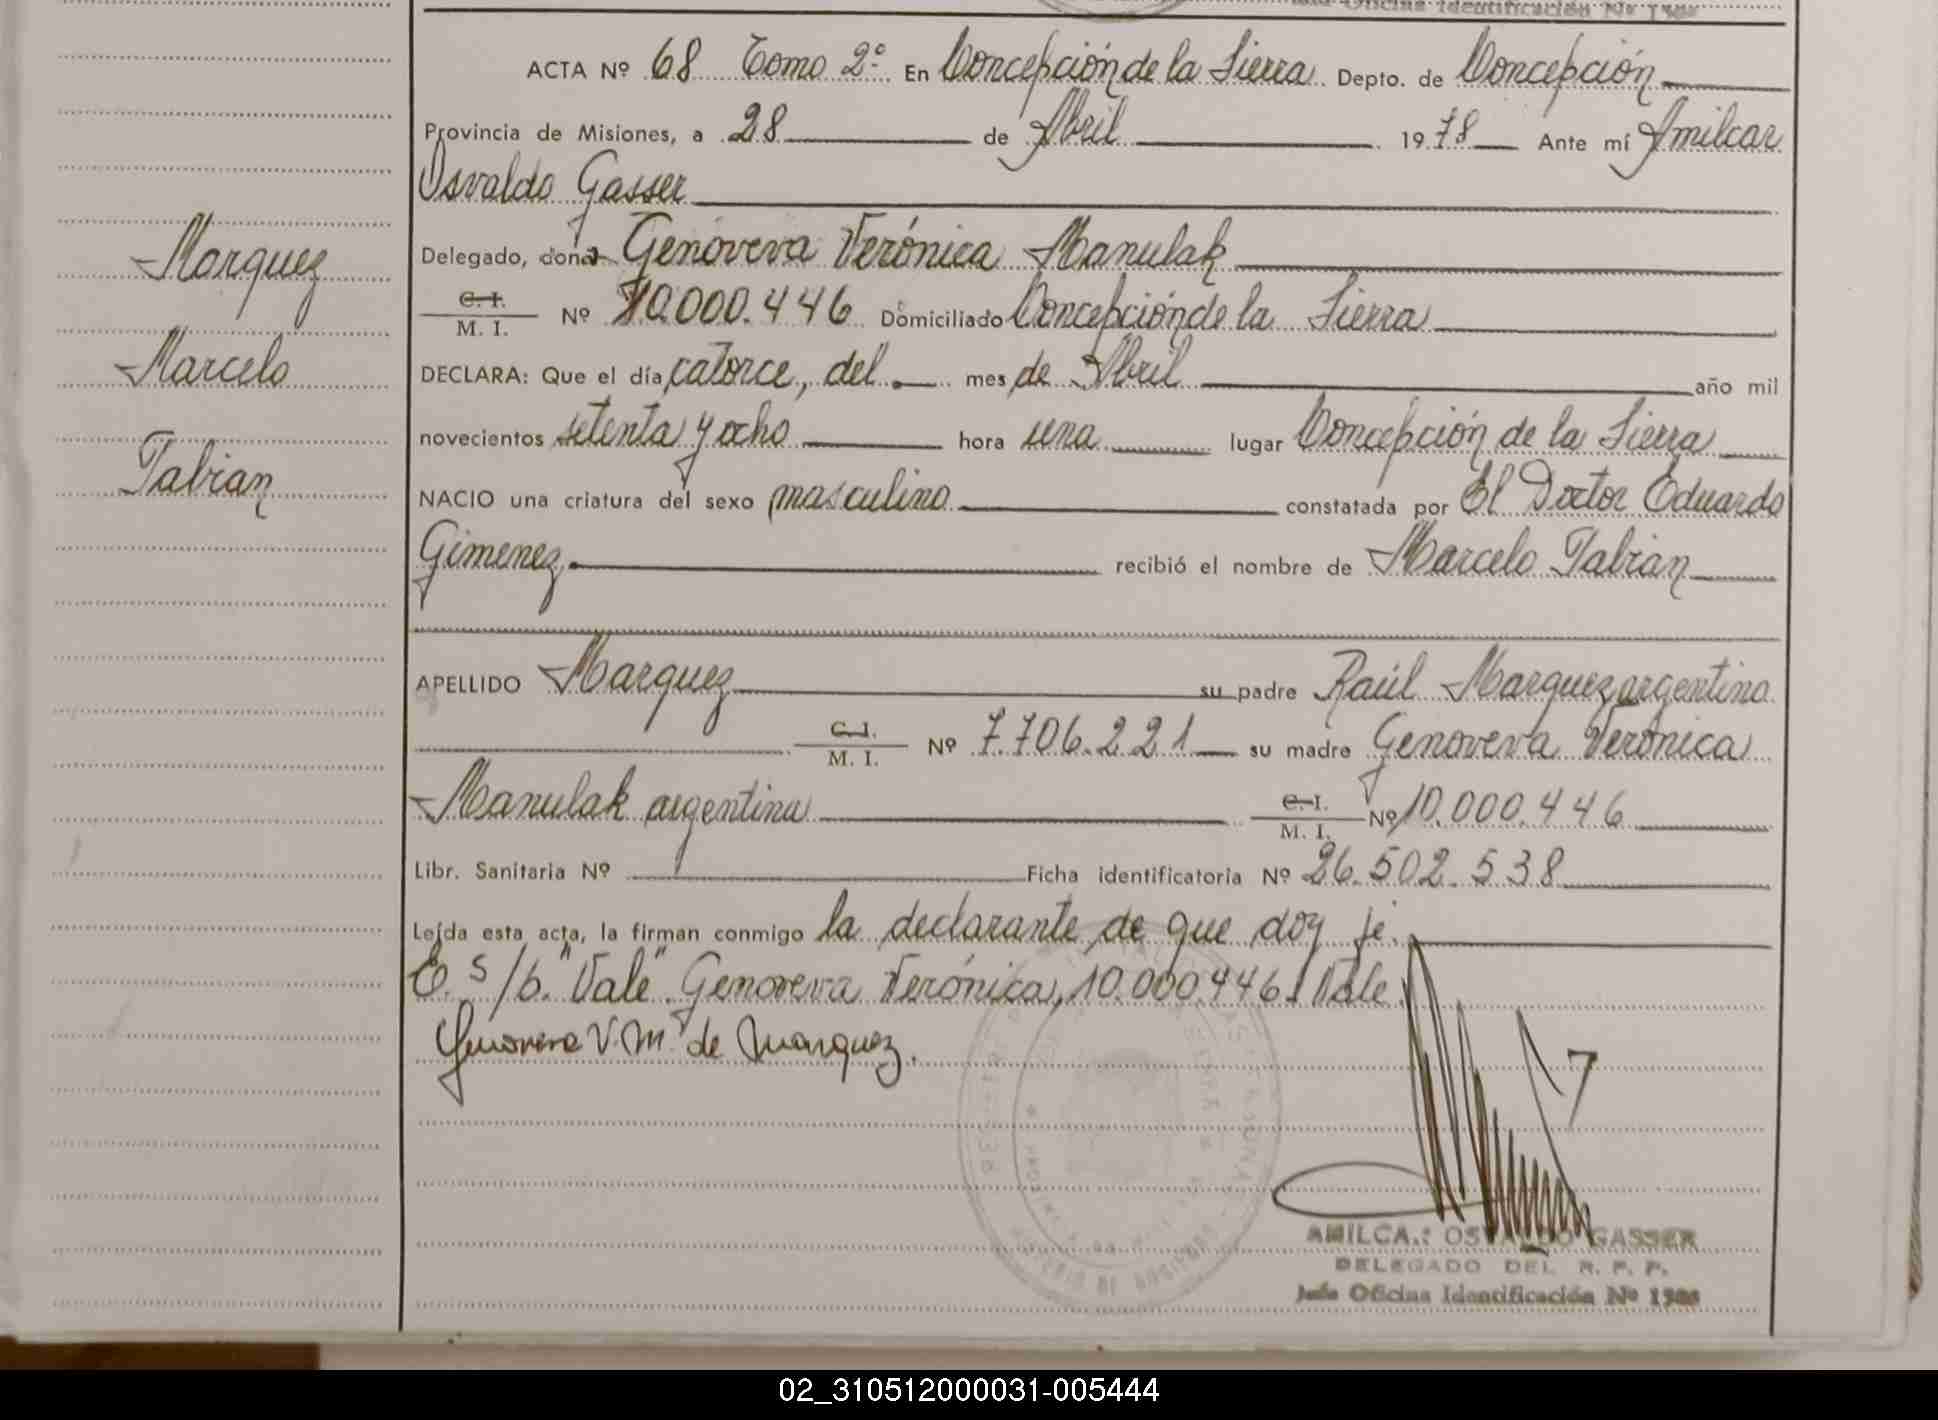 Oficina Identificación Nº
ACTA Nº 68 Tomo 2º En Concepción de la Sierra Depto. de Concepción
Provincia de Misiones, a 28 de Abril 1978 Ante mí Amilcar
Osvaldo Gasser
Delegado, dona Genoveva Verónica Manulak
C. I.
M. I. Nº 10.000.446 Domiciliado Concepción de la Sierra
DECLARA: Que el día catorce, del mes de Abril año mil
novecientos setenta y ocho hora una lugar Concepción de la Sierra
NACIO una criatura del sexo masculino constatada por El Doctor Eduardo
Gimenez recibió el nombre de Marcelo Fabian
Marquez
Marcelo
Fabian
APELLIDO Marquez su padre Raúl Marquez argentino
C. I.
M. I. Nº 7.706.221 su madre Genoveva Verónica
Manulak argentina C. I.
M. I. Nº 10.000.446
Libr. Sanitaria Nº Ficha identificatoria Nº 26.502.538
Leída esta acta, la firman conmigo la declarante de que doy fé.
E. s/b. "Vale" Genoveva Verónica, 10.000.446. Vale
Genoveva V. M. de Marquez.
OSVALDO GASSER
DELEGADO DEL R. P. P.
Jefe Oficina Identificación Nº
02_310512000031-005444